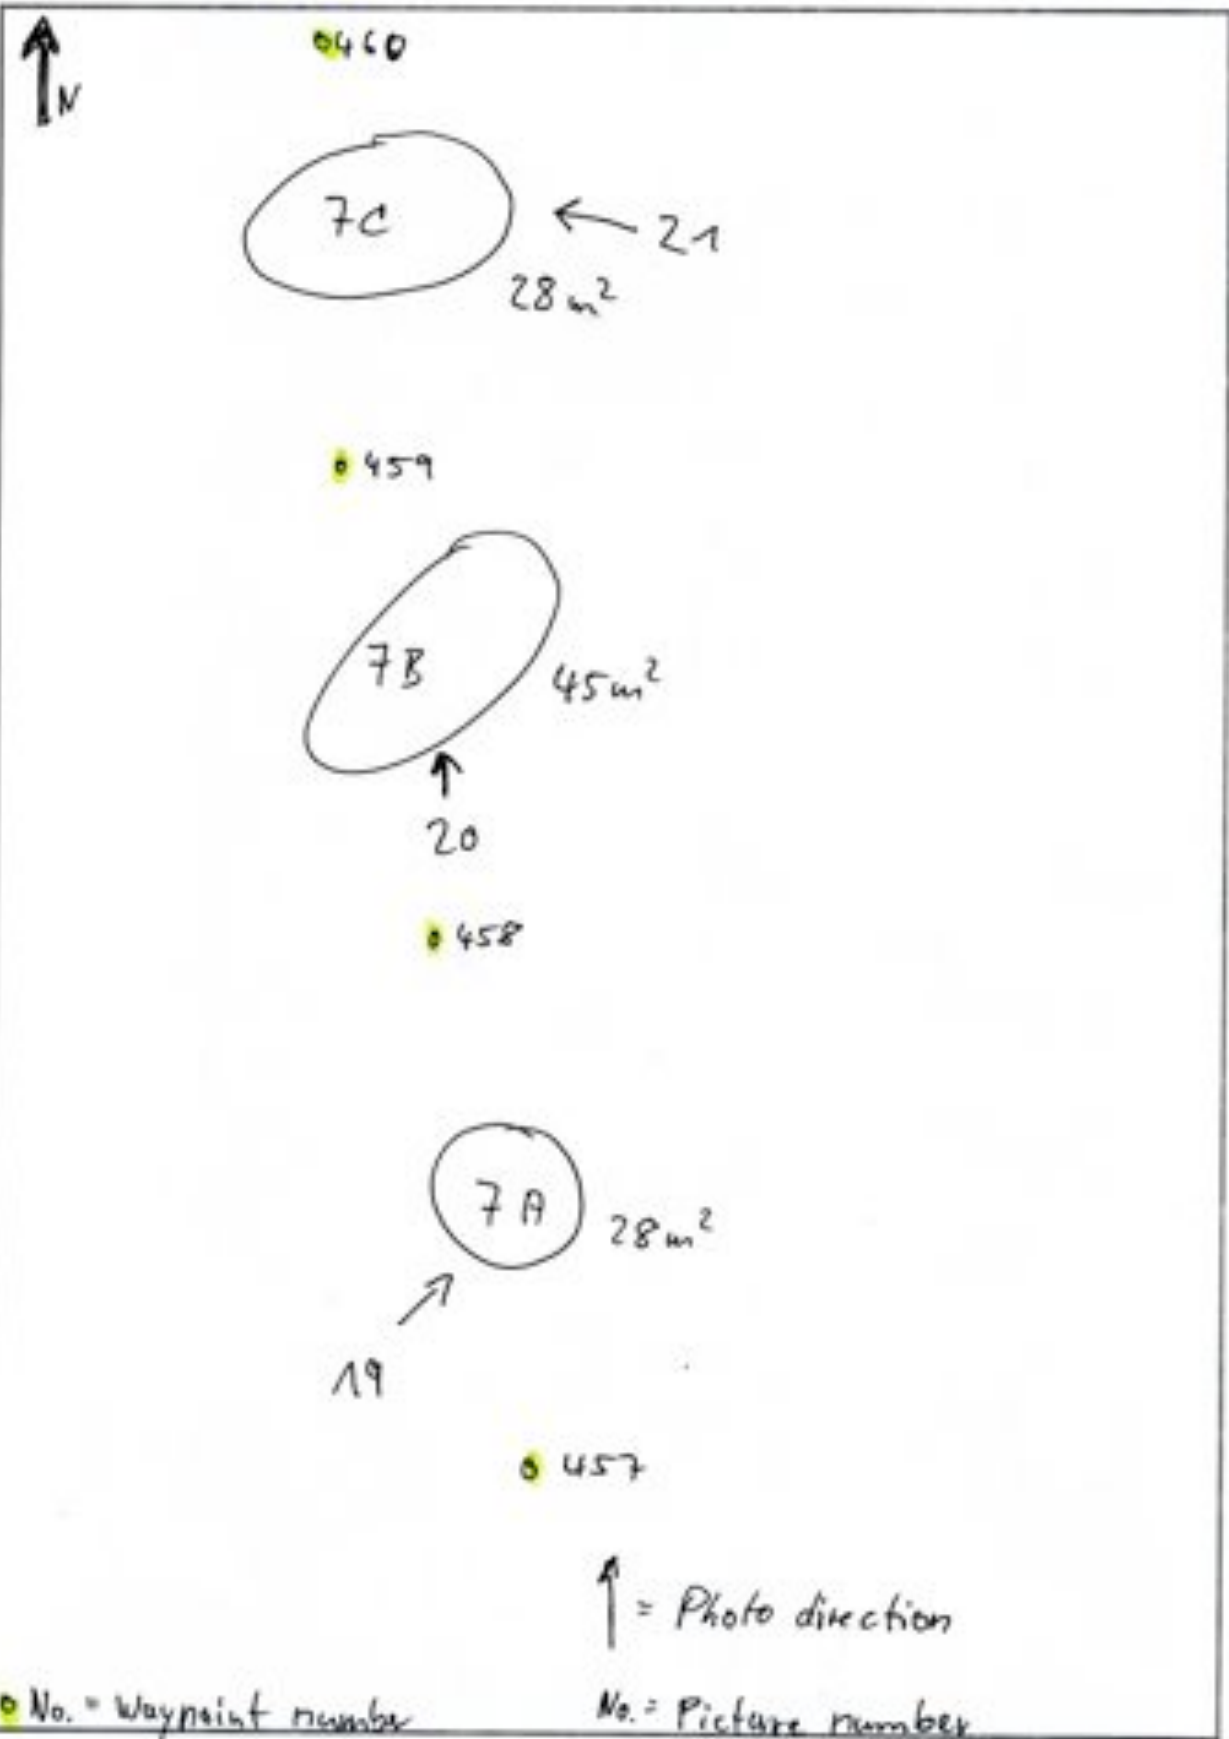 460
N
7C
21
28m²
459
7B
45m²
20
458
7A
28m²
19
457
= Photo direction
No. = Waypoint number
No. = Picture number